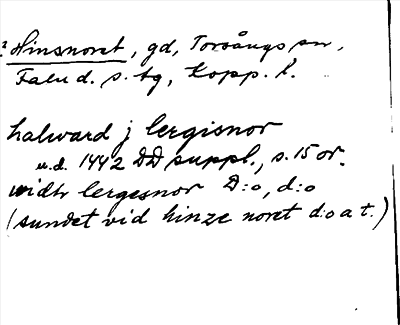 ? Hinsnoret, gd, Torsångs sn,
Falu d. s. tg, Kopp. l.
halward j lergisnor
u.d. 1442 DD suppl., s. 15 or.
widh lergesnor D:o, d:o
(sundet vid hinze noret d:o a t.)